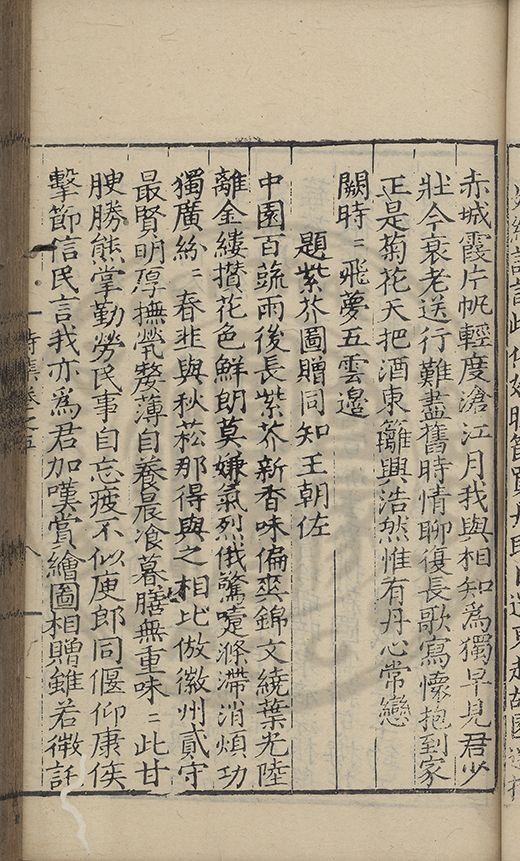 赤城霞片帆輕度滄江月我與相知為獨早見君少
壯今衰老送行難盡舊時情聊復長歌寫懷抱到家
正是菊花天把酒東籬興浩然惟有丹心常戀
闕時〻飛夢五雲邊
題紫芥圖贈同知王朝佐
中園百蔬雨後長紫芥新香味偏爽錦文繞葉光陸
離金縷攅花色鮮朗莫嫌氣烈俄驚嚏滌滯消煩功
獨廣紛〻春韭與秋菘那得與之相比倣徽州貳守
最賢明厚撫煢嫠薄自養晨飡暮膳無重味〻此甘
腴勝熊掌勤勞民事自忘疲不似庾郎同偃仰康侯
擊節信民言我亦為君加嘆賞繪圖相贈雖若微託
詩集卷之五